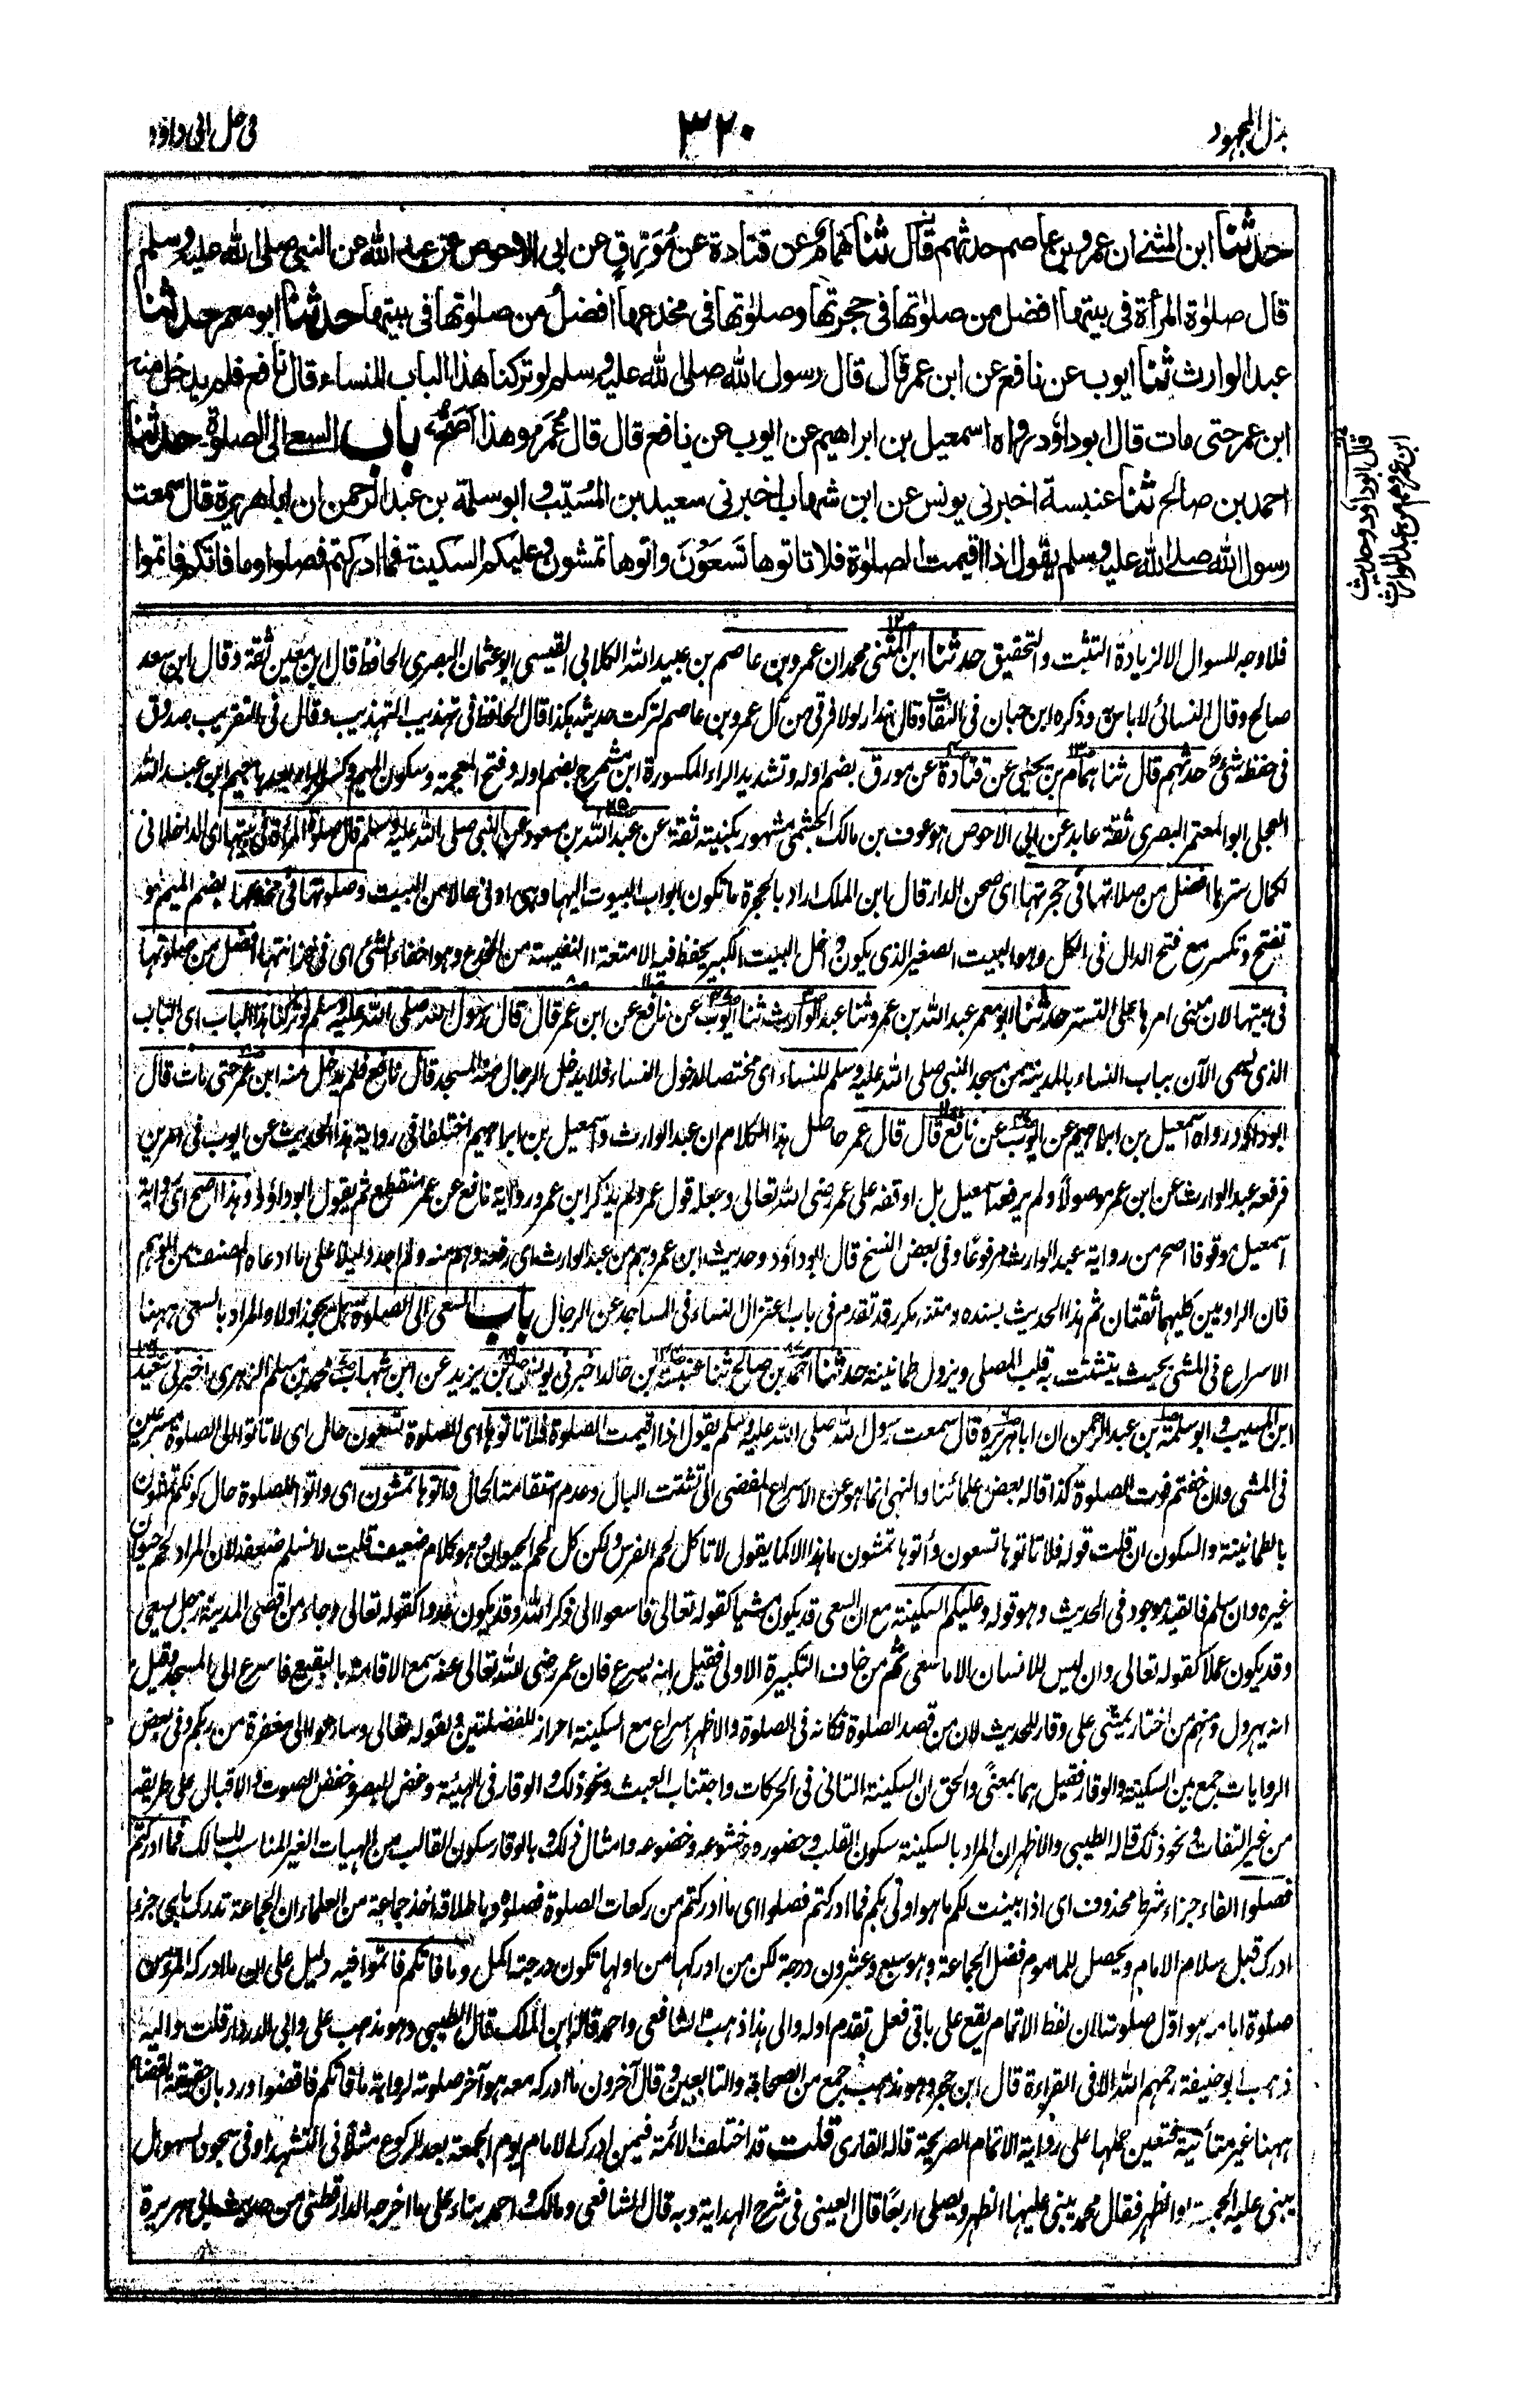 بذل المجهود
٣٢٠
فى حل ابى داؤد
حدثنا ابن المثنى ان عمرو بن عاصم حدثهم قال ثنا همام عن قتادة عن مُوَرِّقٍ عن ابى الاحوص عن عبد الله عن النبى صلى الله عليه وسلم
قال صلوٰة المرأة فى بيتها افضل من صلوٰتها فى حجرتها وصلوٰتها فى مخدعها افضلُ من صلوٰتها فى بيتها حدثنا ابو معمر حدثنا
عبد الوارث ثنا ايوب عن نافع عن ابن عمر قال قال رسول الله صلى الله عليه وسلم لو تركنا هذا الباب للنساء قال نافع فلم يدخل منه
ابن عمر حتى مات قال ابو داؤد رواه اسمعيل بن ابراهيم عن ايوب عن نافع قال قال عُمَر وهذا اَصَحُّ باب السعى الى الصلوٰة حدثنا
احمد بن صالح ثنا عنبسة اخبرنى يونس عن ابن شهاب اخبرنى سعيد بن المُسَيّب وابو سلمة بن عبد الرحمن ان اباهريرة قال سمعت
رسول الله صلى الله عليه وسلم يقول اذا اقيمت الصلوٰة فلا تاتوها تَسعَوْنَ واتوها تمشون وعليكم السكينة فما ادركتم فصلوا وما فاتكم فاتموا
قال ابو داؤد وحديث
ابن عمر وهم من عبد الوارث
فلا وجه للسوال الا لزيادة التثبت والتحقيق حدثنا ابن المثنى محمد ان عمرو بن عاصم بن عبيد الله الكلابى القيسى ابو عثمان البصرى الحافظ قال ابن معين ثقة وقال ابن سعد
صالح وقال النسائى لا باس به وذكره ابن حبان فى الثقات وقال بندار لولا فرقى من آل عمرو بن عاصم لتركت حديثه هكذا قال الحافظ فى تهذيب التهذيب وقال فى التقريب صدوق
فى حفظه شئ حدثهم قال ثنا همام بن يحيى عن قتادة عن مورق بضم اوله وتشديد الراء المكسورة ابن مشمرج بضم اوله وفتح المعجمة وسكون الميم وكسر الراء بعدها جيم ابن عبد الله
العجلى ابو المعتمر البصرى ثقة عابد عن ابى الاحوص هو عوف بن مالك الجشمى مشهور بكنيته ثقة عن عبد الله بن مسعود عن النبى صلى الله عليه وسلم قال صلوٰة المرأة فى بيتها اى الداخلانى
لكمال سترها افضل من صلاتها فى حجرتها اى صحن الدار قال ابن الملك اراد بالحجرة ما تكون ابواب البيوت اليها وهى اونى حالا من البيت وصلوتها فى مخدعها بضم الميم
تفتح وتكسر مع فتح الدال فى الكل وهو البيت الصغير الذى يكون داخل البيت الكبير يحفظ فيه الامتعة النفيسة من الخدع وهو اخفاء الشئ اى فى خزانتها افضل من صلوتها
فى بيتها لان مبنى امرها على التستر حدثنا ابو معمر عبد الله بن عمرو ثنا عبد الوارث ثنا ايوب عن نافع عن ابن عمر قال قال رسول الله صلى الله عليه وسلم لو تركنا هذا الباب اى الباب
الذى يسمى الآن بباب النساء بالمدينة من مسجد النبى صلى الله عليه وسلم للنساء اى مختصا لدخول النساء فلا يدخل الرجال منه المسجد قال نافع فلم يدخل منه ابن عمر حتى مات قال
ابو داؤد رواه اسمعيل بن ابراهيم عن ايوب عن نافع قال قال عمر حاصل هذا الكلام ان عبد الوارث واسمعيل بن ابراهيم اختلفا فى رواية هذا الحديث عن ايوب فى امرين
فرفعه عبد الوارث عن ابن عمر موصولا ولم يرفعه اسمعيل بل اوقفه على عمر رضى الله تعالى وجعله قول عمر ولم يذكر ابن عمر ورواية نافع عن عمر منقطع ثم يقول ابو داؤد وهذا اصح اى رواية
اسمعيل موقوفا اصح من رواية عبد الوارث مرفوعًا وفى بعض النسخ قال ابو داؤد وحديث ابن عمر وهم من عبد الوارث اى رفعه وهم منه ولم اجد دليلا على ما ادعاه المصنف من الوهم
فان الراويين كليهما ثقتان ثم هذا الحديث بسنده ومتنه مكرر قد تقدم فى باب اعتزال النساء فى المساجد عن الرجال باب السعى الى الصلوة هل يجوز اولا والمراد بالسعى ههنا
الاسراع فى المشى بحيث يتشتت به قلب المصلى ويزول طمانينته حدثنا احمد بن صالح ثنا عنبسة بن خالد اخبرنى يونس بن يزيد عن ابن شهاب محمد بن مسلم الزهرى اخبرنى سعيد
ابن المسيب وابو سلمة بن عبد الرحمن ان اباهريرة قال سمعت رسول الله صلى الله عليه وسلم يقول اذا اقيمت الصلوة فلا تاتوها اى الصلوة تسعون حال اى لا تاتوا الى الصلوة مسرعين
فى المشى وان خفتم فوت الصلوة كذا قاله بعض علمائنا والنهى انما هو عن الاسراع المفضى الى تشتت البال وعدم استقامة الحال واتوها تمشون اى واتوا الصلوة حال كونكم تمشون
بالطمانينة والسكون ان قلت قوله فلا تاتوها تسعون وأتوها تمشون ما هذا الا كما يقول لا تاكل لحم الفرس ولكن كل لحم الحيوان وهو كلام ضعيف قلت لا نسلم ضعفه لان المراد لحم حيوان
غيره وان سلم فالقيد موجود فى الحديث وهو قوله وعليكم السكينة مع ان السعى قد يكون مشيا كقوله تعالى فاسعوا الى ذكر الله وقد يكون عدوا كقوله تعالى وجاء من اقصى المدينة رجل يسعى
وقد يكون عملا كقوله تعالى وان ليس للانسان الا ما سعى ثم من خاف التكبيرة الاولى فقيل انه يسرع فان عمر رضى الله تعالى عنه سمع الاقامة بالبقيع فاسرع الى المسجد وقيل
انه يهرول ومنهم من اختار يمشى على وقار للحديث لان من قصد الصلوة فكانه فى الصلوة والاظهر اسراع مع السكينة احراز للفضيلتين ولقوله تعالى وسارعوا الى مغفرة من ربكم وفى بعض
الروايات جمع بين السكينة والوقار فقيل هما بمعنًى والحق ان السكينة التانى فى الحركات واجتناب العبث ونحو ذلك والوقار فى الهيئة وغض البصر وخفض الصوت والاقبال على طريقه
من غير التفات ونحو ذلك قاله الطيبى والاظهر ان المراد بالسكينة سكون القلب وحضوره وخشوعه وخضوعه وامثال ذلك وبالوقار سكون القالب من الهيات الغير المناسب للسالك فما ادركتم
فصلوا الفاء جزاء شرط محذوف اى اذا بينت لكم ما هو اولى بكم فما ادركتم فصلوا اى ما ادركتم من ركعات الصلوة فصلوه وباطلاقه اخذ جماعة من العلماء ان الجماعة تدرك باى جزء
ادرك قبل سلام الامام ويحصل للماموم فضل الجماعة وهو سبع وعشرون درجة لكن من ادركها من اولها تكون درجته اكمل وما فاتكم فاتموا فيه دليل على ان ما ادركه المرء من
صلوة امامه هو اول صلوته لان لفظ الاتمام يقع على باقى فعل تقدم اوله والى هذا ذهب الشافعى واحمد قاله ابن الملك قال الطيبى وهو مذهب على وابى الدرداء قلت واليه
ذهب ابو حنيفة رحمهم الله الا فى القراءة قال ابن حجر وهو مذهب جمع من الصحابة والتابعين وقال آخرون ما ادركه معه هو آخر صلوته لرواية ما فاتكم فاقضوا ورد بان حقيقة القضاء
ههنا غير متأتية فتعين حملها على رواية الاتمام الصريحة قاله القارى قلت قد اختلف الائمة فيمن ادرك الامام يوم الجمعة بعد الركوع مثلا فى التشهد او فى سجود السهو هل
يبنى عليه الجمعة او الظهر فقال محمد يبنى عليها الظهر ويصلى اربعًا قال العينى فى شرح الهداية وبه قال الشافعى ومالك واحمد بناء على ما اخرجه الدارقطنى من حديث ابى هريرة